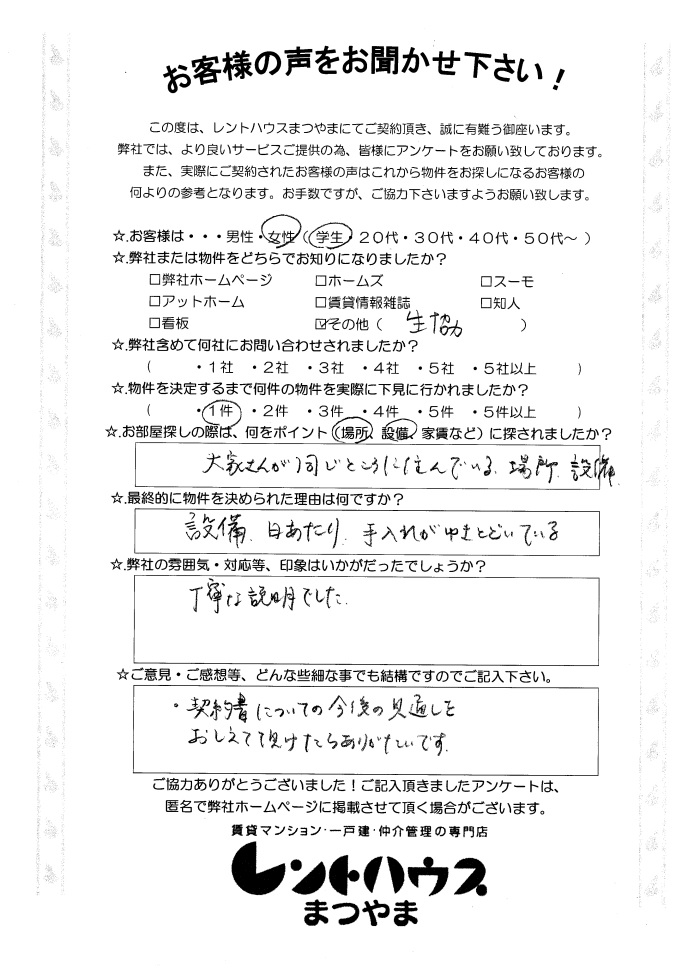 お客様の声をお聞かせ下さい！
この度は、レントハウスまつやまにてご契約頂き、誠に有難う御座います。
弊社では、より良いサービスご提供の為、皆様にアンケートをお願い致しております。
また、実際にご契約されたお客様の声はこれから物件をお探しになるお客様の
何よりの参考となります。お手数ですが、ご協力下さいますようお願い致します。
☆.お客様は・・・男性・女性（学生・20代・30代・40代・50代～）
☆.弊社または物件をどちらでお知りになりましたか？
□弊社ホームページ □ホームズ □スーモ
□アットホーム □賃貸情報雑誌 □知人
□看板 ☑その他（ 生協 ）
☆.弊社含めて何社にお問い合わせされましたか？
（ ・1社 ・2社 ・3社 ・4社 ・5社 ・5社以上 ）
☆.物件を決定するまで何件の物件を実際に下見に行かれましたか？
（ ・1件 ・2件 ・3件 ・4件 ・5件 ・5件以上 ）
☆.お部屋探しの際は、何をポイント（場所、設備、家賃など）に探されましたか？
大家さんが同じところに住んでいる、場所、設備
☆.最終的に物件を決められた理由は何ですか？
設備、日あたり、手入れがゆきとどいている
☆.弊社の雰囲気・対応等、印象はいかがだったでしょうか？
丁寧な説明でした.
☆ご意見・ご感想等、どんな些細な事でも結構ですのでご記入下さい。
・契約書についての今後の見通しを
おしえて頂けたらありがたいです.
ご協力ありがとうございました！ご記入頂きましたアンケートは、
匿名で弊社ホームページに掲載させて頂く場合がございます。
賃貸マンション・一戸建・仲介管理の専門店
レントハウス
まつやま